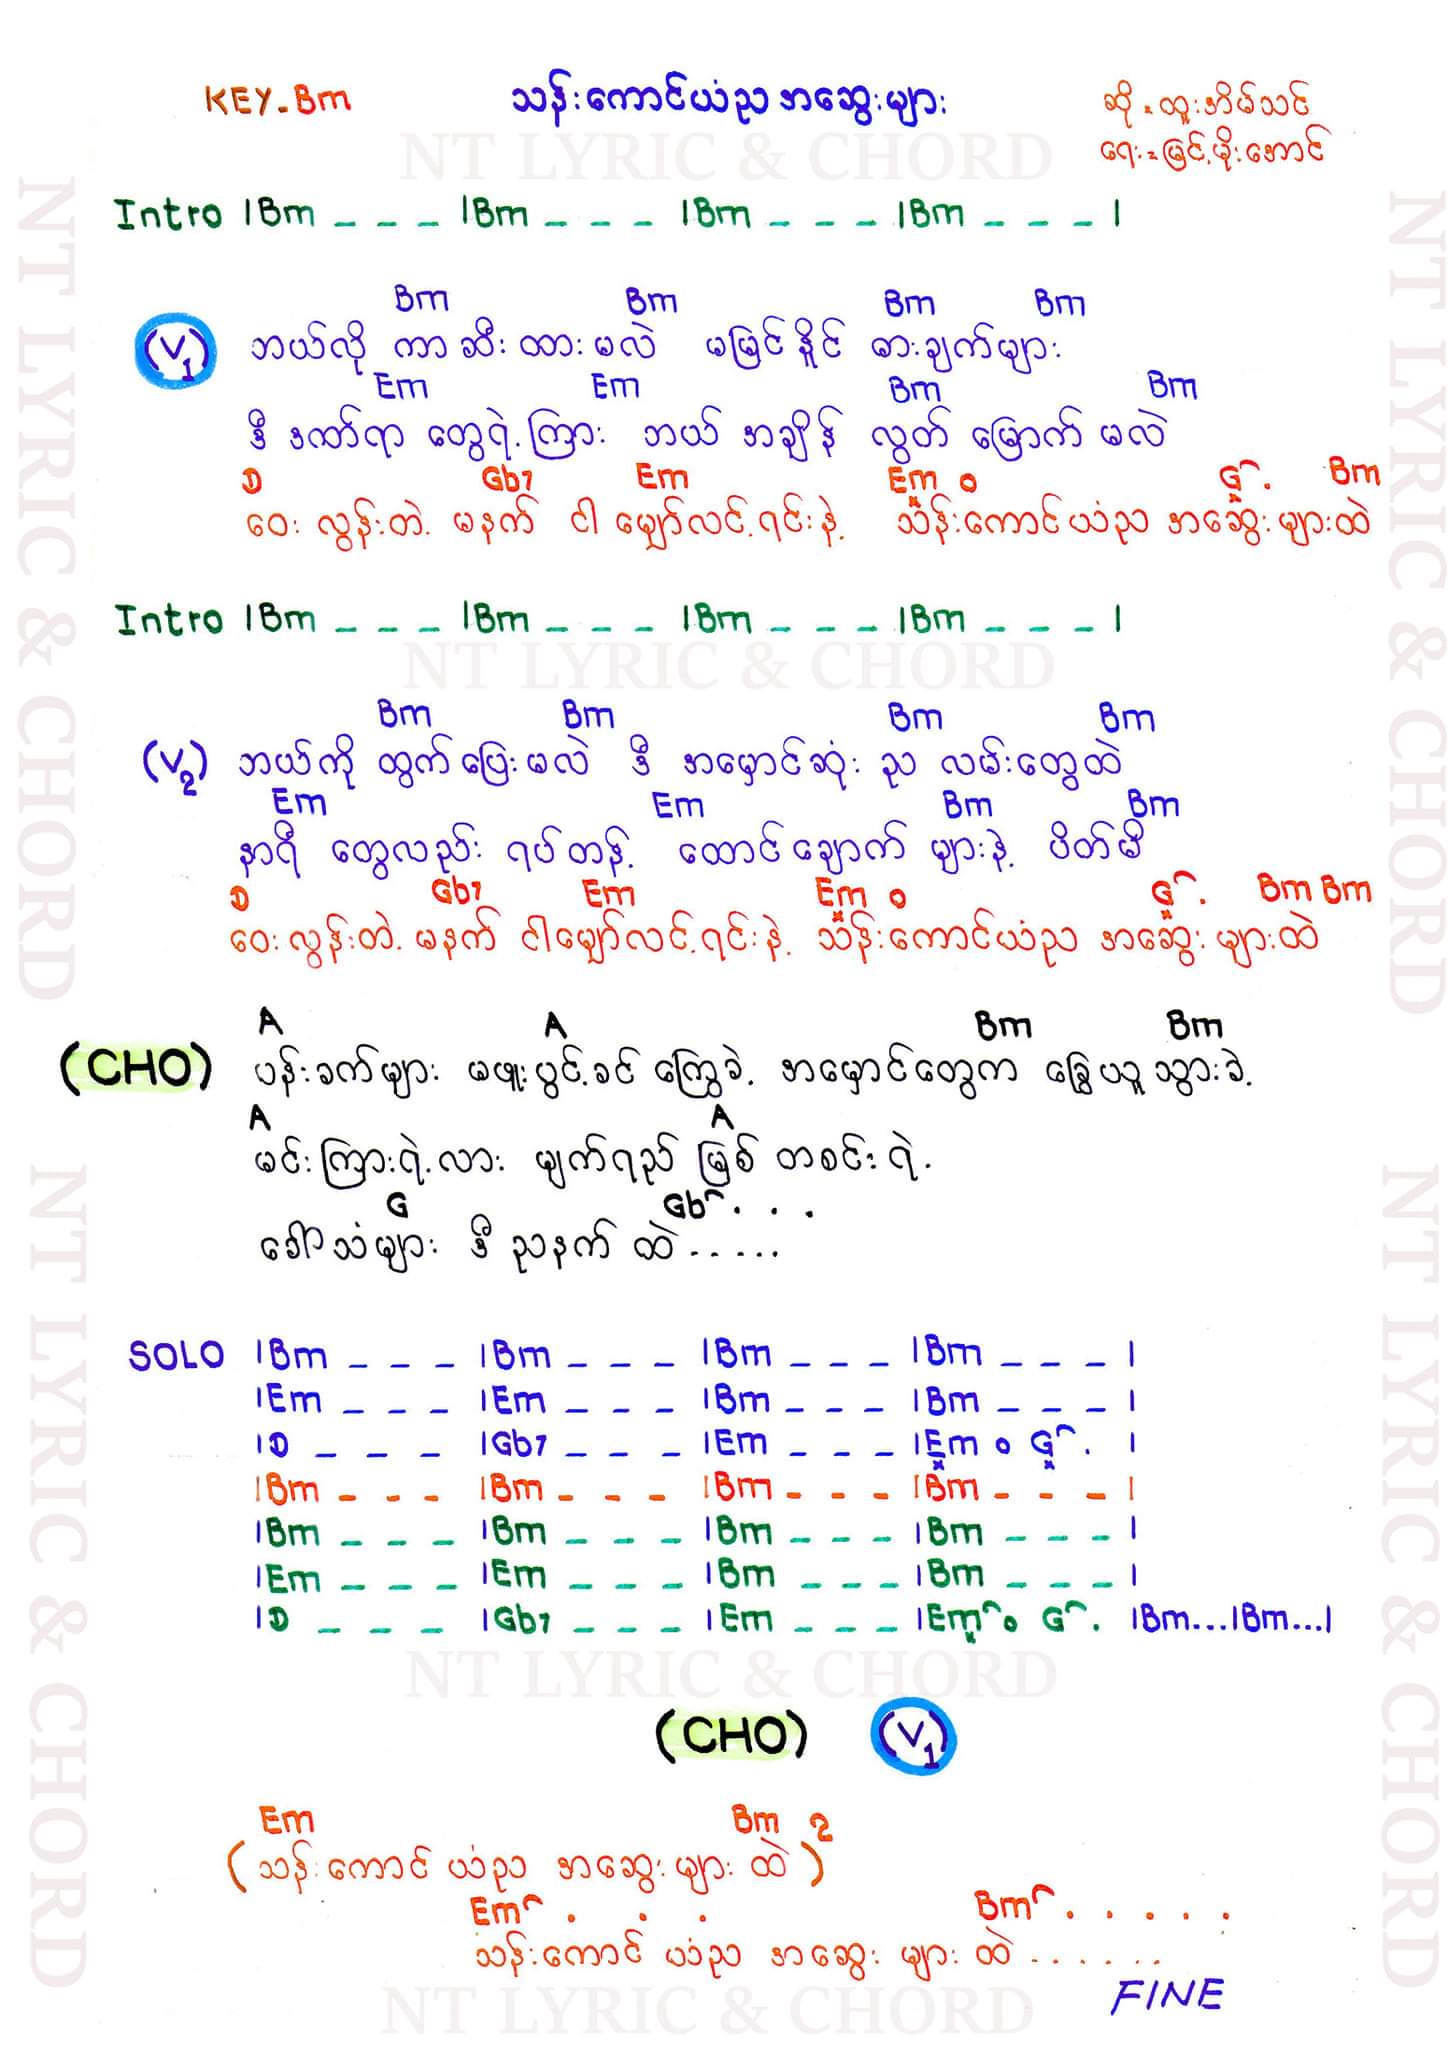 KEY-Bm သန်းကောင်ယံည အဆွေးများ ဆို = ထူးအိမ်သင်
NT LYRIC & CHORD
ရေး = မြင့်မိုးအောင်
Intro |Bm _ _ _ |Bm _ _ _ |Bm _ _ _ |Bm _ _ _ |
Bm Bm Bm Bm
(V1) ဘယ်လို ကာဆီးထားမလဲ မမြင်နိုင် ဓားချက်များ
Em Em Bm Bm
ဒီ ဒဏ်ရာ တွေရဲ့ကြား ဘယ် အချိန် လွတ် မြောက် မလဲ
D Gb7 Em Em o G . Bm
ဝေး လွန်းတဲ့ မနက် ငါ မျှော်လင့်ရင်းနဲ့ သန်းကောင်ယံည အဆွေးများထဲ
Intro |Bm _ _ _ |Bm _ _ _ |Bm _ _ _ |Bm _ _ _ |
NT LYRIC & CHORD
Bm Bm Bm Bm
(V2) ဘယ်ကို ထွက်ပြေးမလဲ ဒီ အမှောင်ဆုံး ည လမ်းတွေထဲ
Em Em Bm Bm
နာရီ တွေလည်း ရပ်တန့် ထောင်ချောက် များနဲ့ ပိတ်မိ
D Gb7 Em Em o G . Bm Bm
ဝေးလွန်းတဲ့ မနက် ငါမျှော်လင့်ရင်းနဲ့ သန်းကောင်ယံည အဆွေးများထဲ
A A Bm Bm
(CHO) ပန်းခက်များ မဖူးပွင့်ခင် ကြွေခဲ့ အမှောင်တွေက ခြွေယူသွားခဲ့
A A
မင်းကြားရဲ့လား မျက်ရည် မြစ် တစင်းရဲ့
G Gb . . .
ခေါ်သံများ ဒီ ညနက် ထဲ .....
SOLO |Bm _ _ _ |Bm _ _ _ |Bm _ _ _ |Bm _ _ _ |
|Em _ _ _ |Em _ _ _ |Bm _ _ _ |Bm _ _ _ |
|D _ _ _ |Gb7 _ _ _ |Em _ _ _ |Em o G . |
|Bm _ _ _ |Bm _ _ _ |Bm _ _ _ |Bm _ _ _ |
|Bm _ _ _ |Bm _ _ _ |Bm _ _ _ |Bm _ _ _ |
|Em _ _ _ |Em _ _ _ |Bm _ _ _ |Bm _ _ _ |
|D _ _ _ |Gb7 _ _ _ |Em _ _ _ |Em o G . |Bm...|Bm...|
NT LYRIC & CHORD
(CHO) (V1)
Em Bm 2
(သန်းကောင် ယံည အဆွေးများ ထဲ)
Em . . . Bm . . . . .
သန်းကောင် ယံည အဆွေး များ ထဲ ......
FINE
NT LYRIC & CHORD
NT LYRIC & CHORD
NT LYRIC & CHORD
NT LYRIC & CHORD
NT LYRIC & CHORD